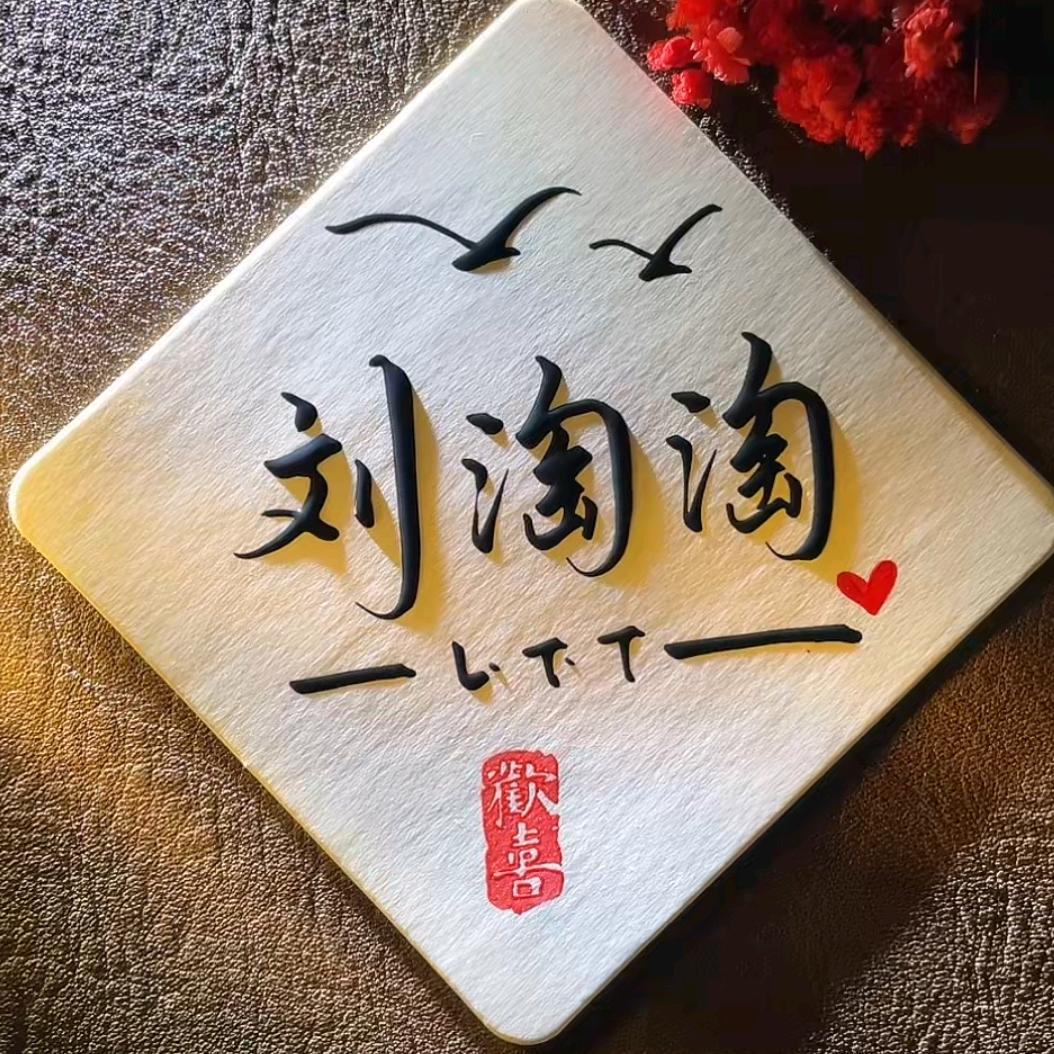 刘淘淘
L.T.T
歡喜